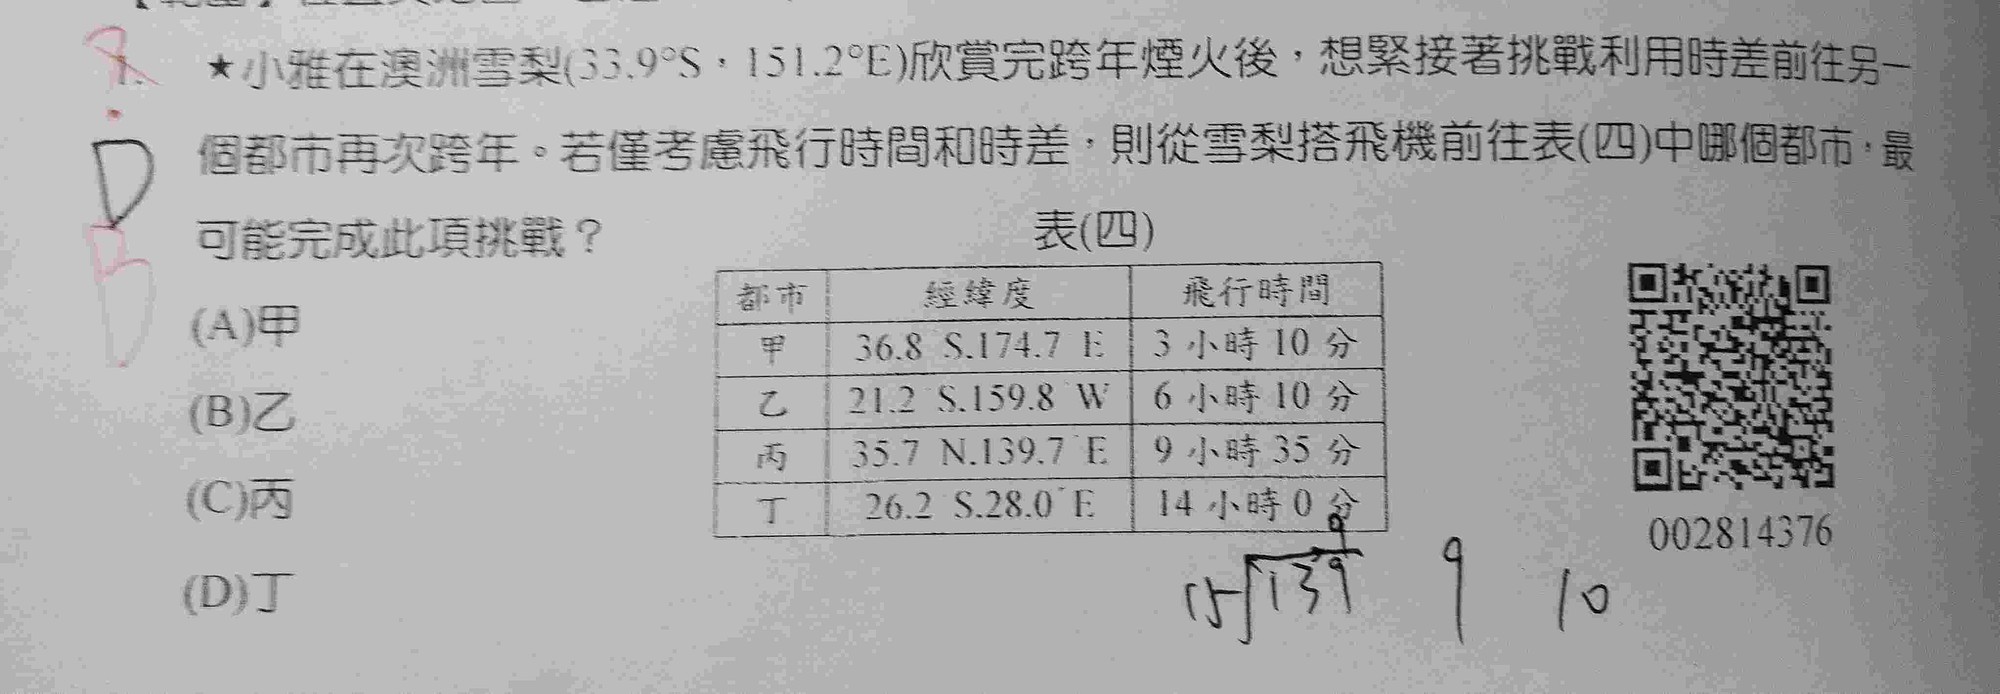 ★小雅在澳洲雪梨(33.9°S，151.2°E)欣賞完跨年煙火後，想緊接著挑戰利用時差前往另一
個都市再次跨年。若僅考慮飛行時間和時差，則從雪梨搭飛機前往表(四)中哪個都市，最
可能完成此項挑戰？
表(四)
都市 經緯度 飛行時間
甲 36.8 S.174.7 E 3 小時 10 分
乙 21.2 S.159.8 W 6 小時 10 分
丙 35.7 N.139.7 E 9 小時 35 分
丁 26.2 S.28.0 E 14 小時 0 分
(A)甲
(B)乙
(C)丙
(D)丁
002814376
D
9
15 139 9 10